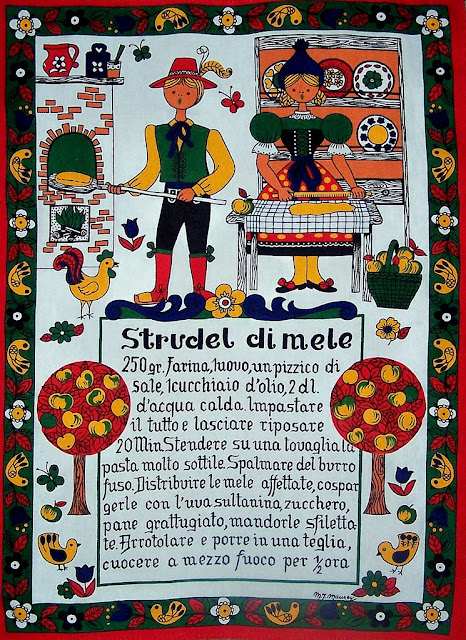 Strudel di mele
250 gr. farina, 1 uovo, un pizzico di
sale, 1 cucchiaio d'olio, 2 dl.
d'acqua calda. Impastare
il tutto e lasciare riposare
20 Min. Stendere su una tovaglia la
pasta molto sottile. Spalmare del burro
fuso. Distribuire le mele affettate, cospar
gerle con l'uva sultanina, zucchero,
pane grattugiato, mandorle sfiletta-
te. Arrotolare e porre in una teglia,
cuocere a mezzo fuoco per ½ ora